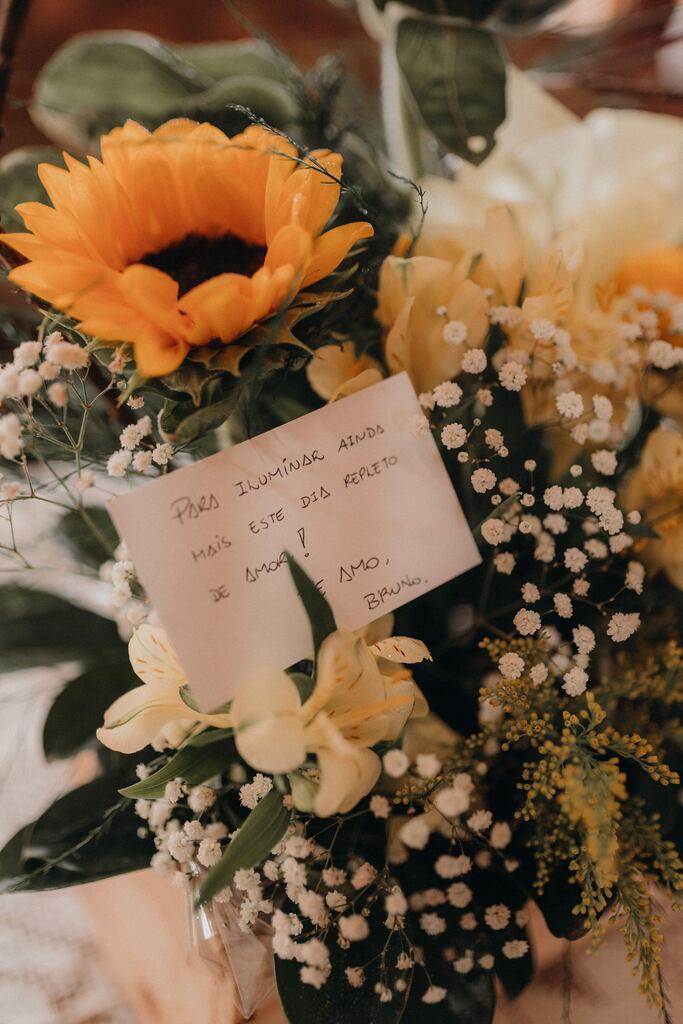 PARA ILUMINAR AINDA
MAIS ESTE DIA REPLETO
DE AMOR!
AMO,
BRUNO.